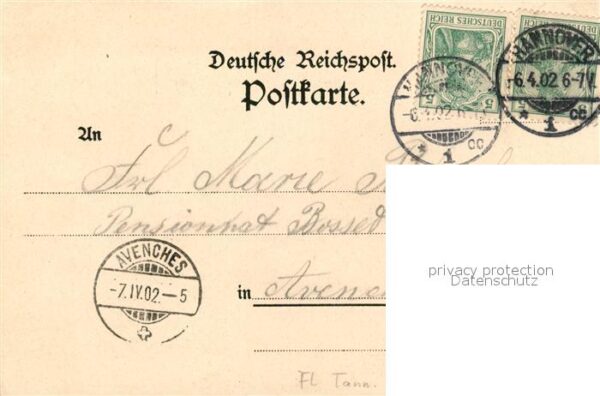 DEUTSCHES REICH
5
HANNOVER
-6.4.02
1
cc
HANNOVER
-6.4.02 6-7V.
* 1 cc
Deutsche Reichspost.
Postkarte.
An
Frl Marie
Pensionnat Bosset
in Avenc
AVENCHES
-7.IV.02.-5
privacy protection
Datenschutz
FL Tann.